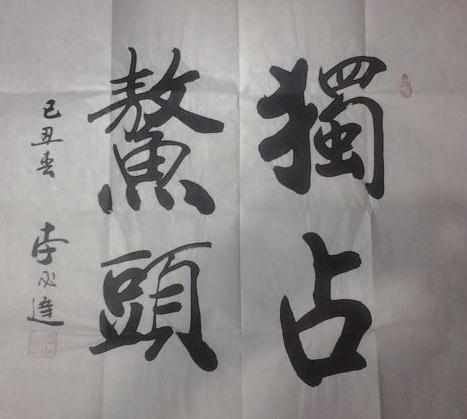 獨占
鰲頭
己丑春
李必達